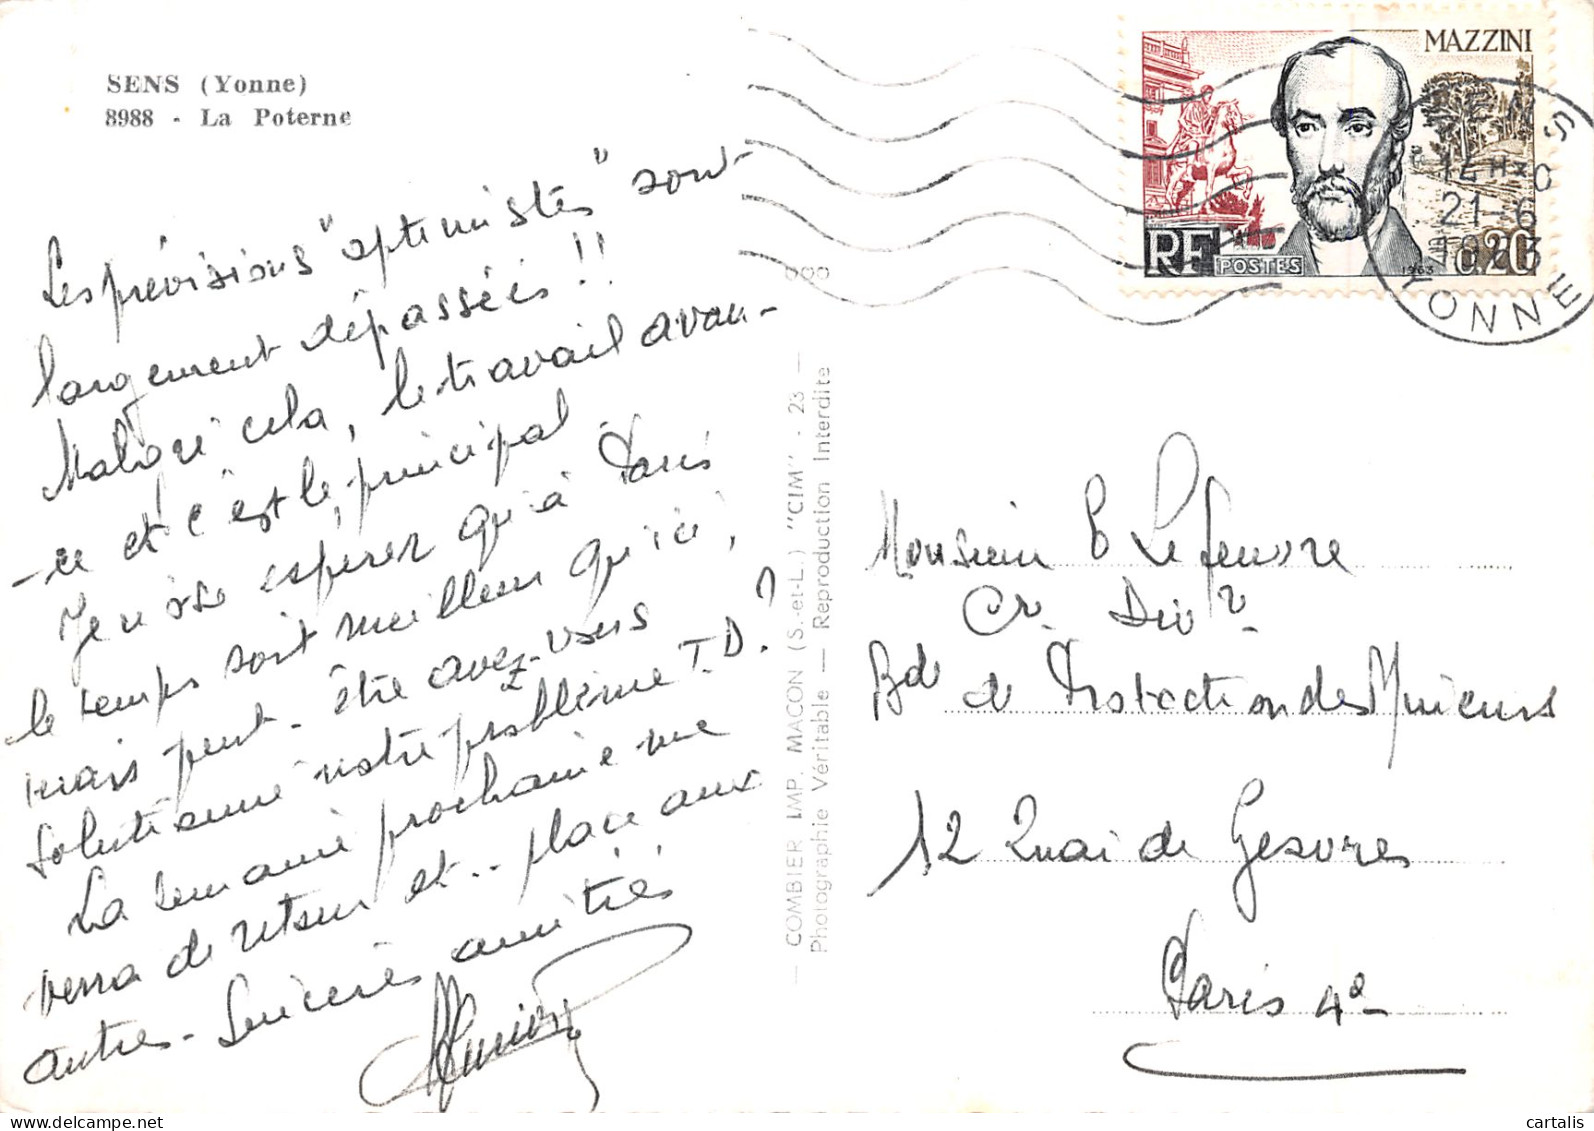 SENS (Yonne)
8988 - La Poterne
Les prévisions "optimistes" sont
largement dépassées !!
Malgré cela, le travail avan-
-ce et c'est le principal.
Je n'ose espérer qu'à Paris
le temps soit meilleur qu'ici,
mais peut-être avez-vous
solutionné notre problème T.D?
La semaine prochaine me
verra de retour et.. place aux
autres - Sincères amitiés
COMBIER IMP. MACON (S.-et-L.) "CIM" - 23 —
Photographie Véritable — Reproduction Interdite
MAZZINI
RF
POSTES
1963
0,20
SENS
14H30
21-6
1963
YONNE
Monsieur E Lefeuvre
Cr. Divre
Bd de Protection des Mineurs
12 Quai de Gesvres
Paris 4e
cartalis
www.delcampe.net